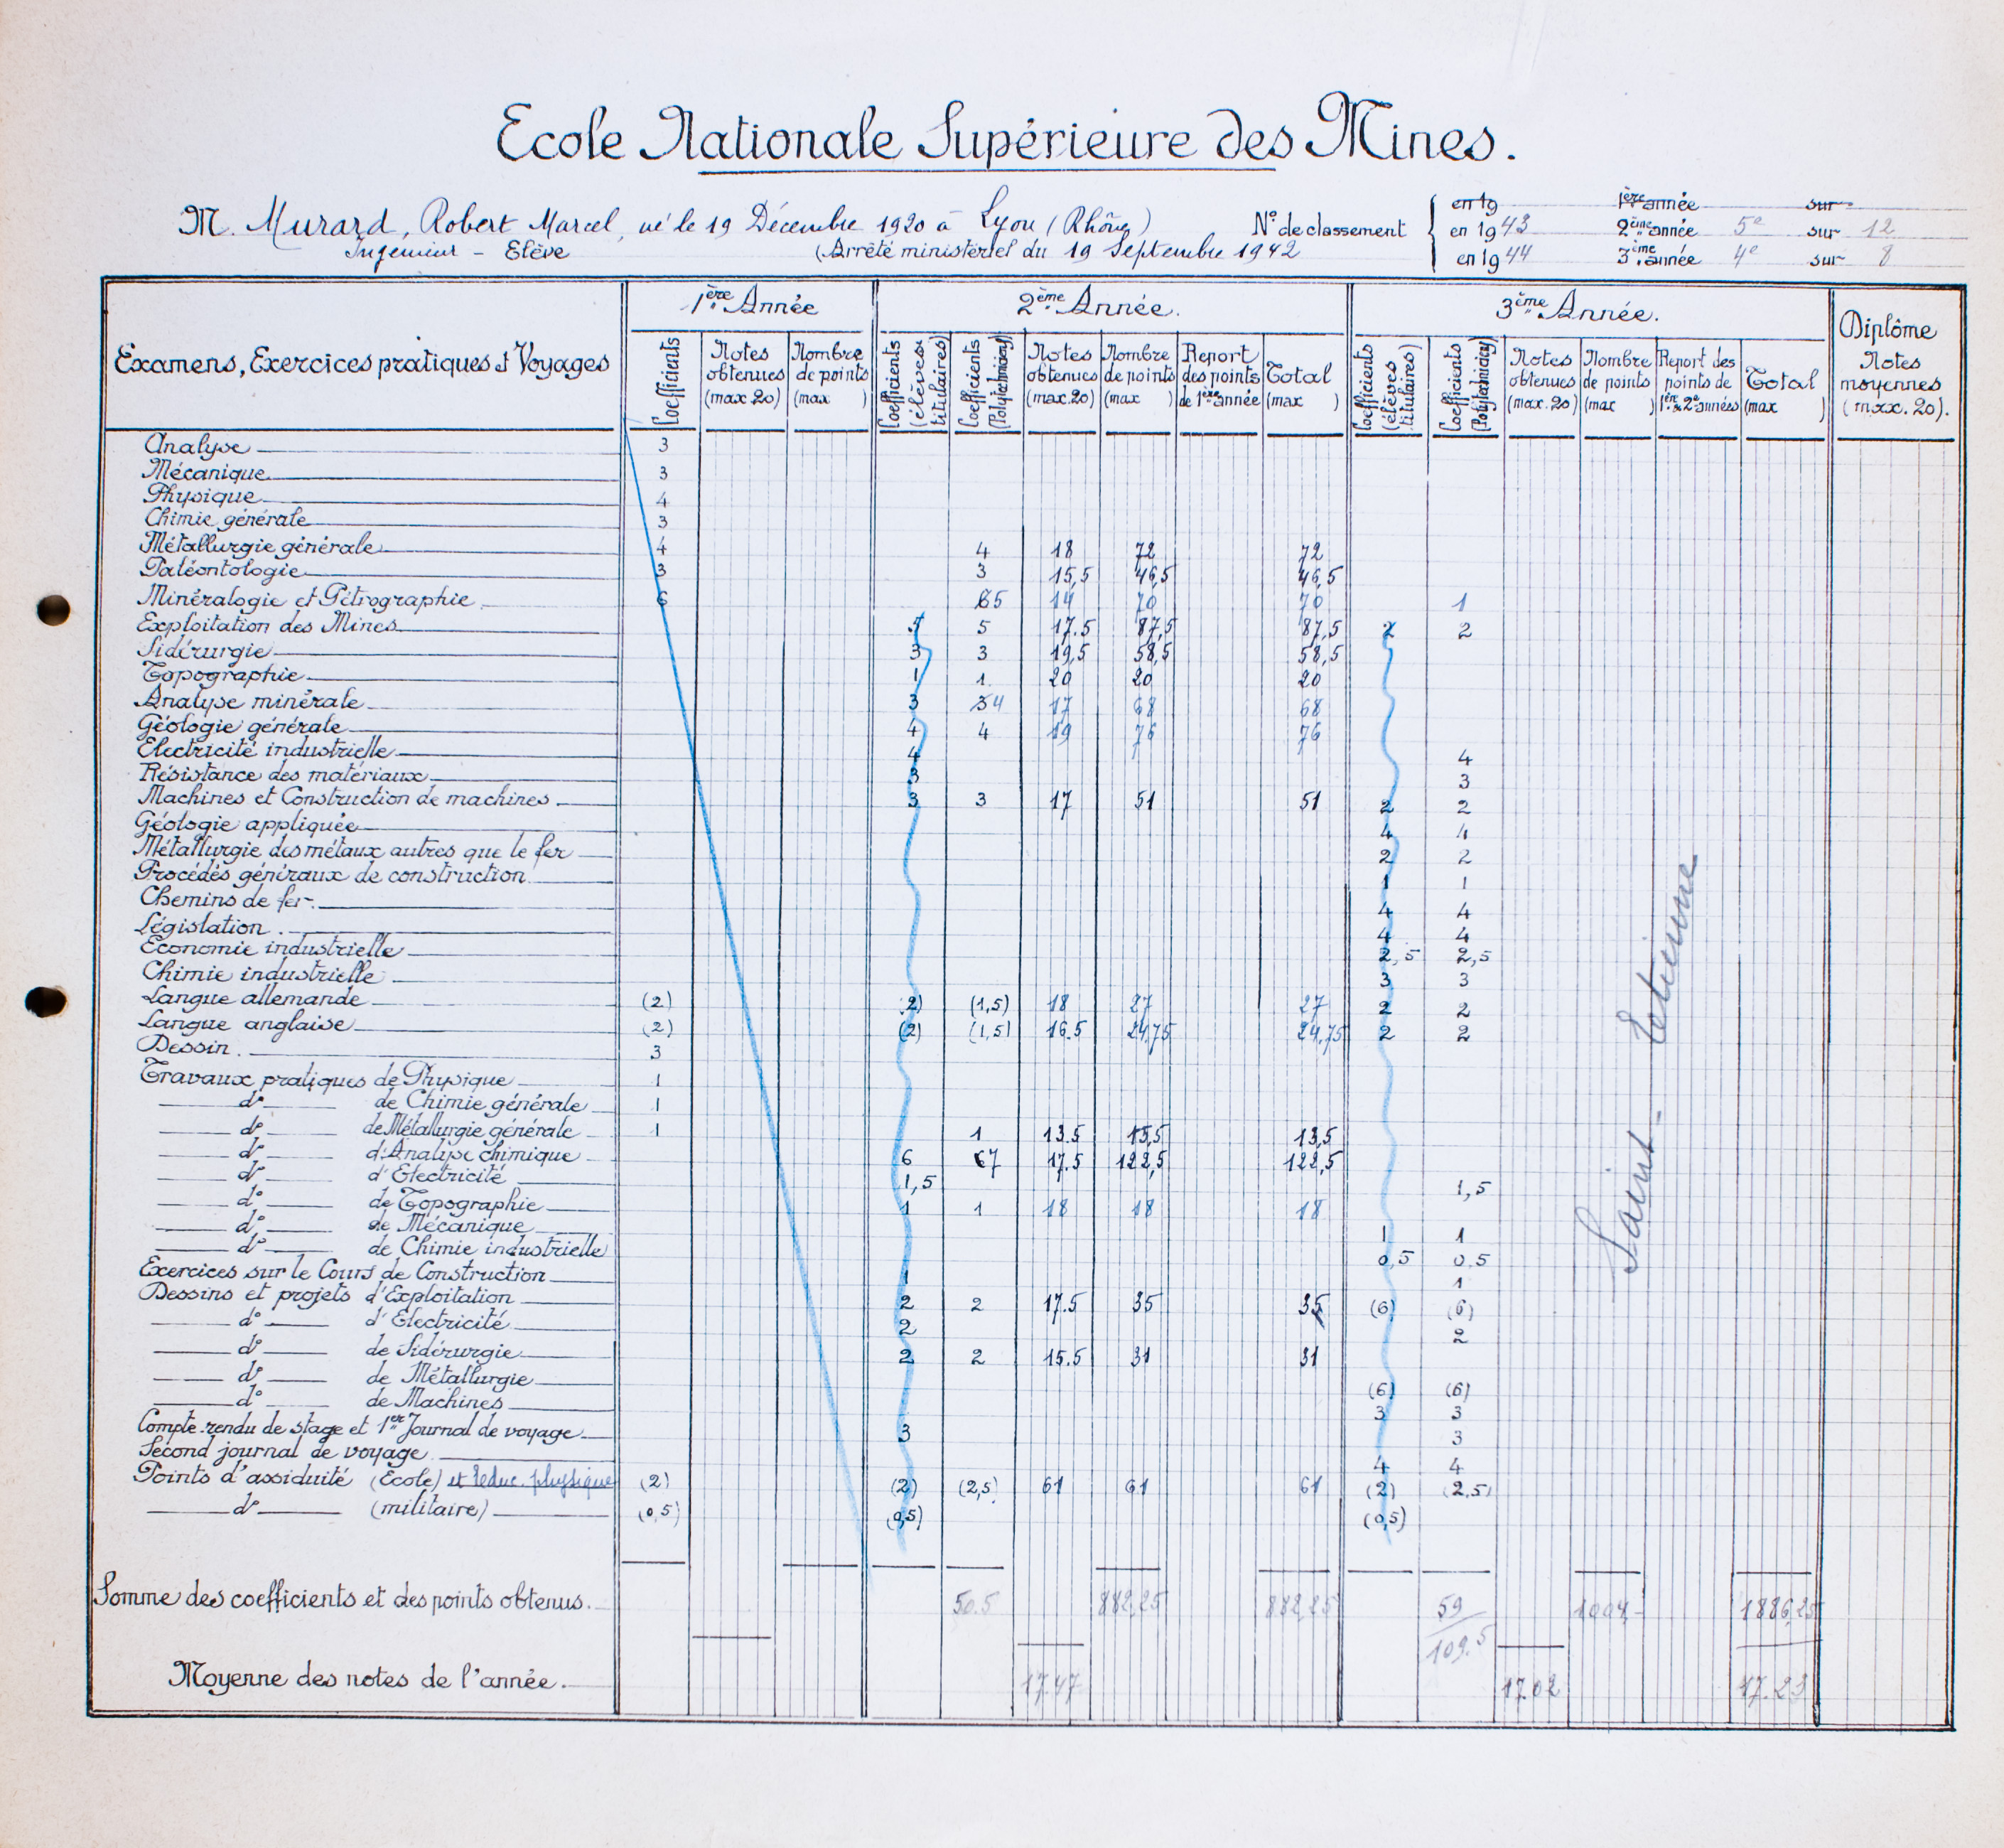 Ecole Nationale Supérieure des Mines.
M. Murard, Robert Marcel, né le 19 Décembre 1920 à Lyon (Rhône)
Ingénieur - Elève (Arrêté ministériel du 19 Septembre 1942
N° de classement
en 19 1ère année sur
en 1943 2ème année 5e sur 12
en 1944 3ème année 4e sur 8
Examens, Exercices pratiques et Voyages
1ère Année
Coefficients
Notes obtenues (max. 20)
Nombre de points (max )
2ème Année.
Coefficients (élèves titulaires)
Coefficients (Polytechniciens)
Notes obtenues (max. 20)
Nombre de points (max )
Report des points de 1ère année
Total (max )
3ème Année.
Coefficients (élèves titulaires)
Coefficients (Polytechniciens)
Notes obtenues (max. 20)
Nombre de points (max )
Report des points de 1ère & 2e années
Total (max )
Diplôme
Notes moyennes (max. 20).
Analyse 3
Mécanique 3
Physique 4
Chimie générale 3
Métallurgie générale 4 4 18 72 72
Paléontologie 3 3 15,5 46,5 46,5
Minéralogie et Pétrographie 6 5 14 70 70 1
Exploitation des Mines 5 5 17.5 87,5 87,5 2 2
Sidérurgie 3 3 19,5 58,5 58,5
Topographie 1 1 20 20 20
Analyse minérale 3 4 17 68 68
Géologie générale 4 4 19 76 76
Electricité industrielle 4 4
Résistance des matériaux 3 3
Machines et Construction de machines 3 3 17 51 51 2 2
Géologie appliquée 4 4
Métallurgie des métaux autres que le fer 2 2
Procédés généraux de construction 1 1
Chemins de fer 4 4
Législation 4 4
Economie industrielle 2,5 2,5
Chimie industrielle 3 3
Langue allemande (2) (2) (1,5) 18 27 27 2 2
Langue anglaise (2) (2) (1,5) 16.5 24,75 24,75 2 2
Dessin 3
Travaux pratiques de Physique 1
d° de Chimie générale 1
d° de Métallurgie générale 1 1 13.5 13,5 13,5
d° d'Analyse chimique 6 7 17.5 122,5 122,5
d° d'Electricité 1,5 1,5
d° de Topographie 1 1 18 18 18
d° de Mécanique 1 1
d° de Chimie industrielle 0,5 0,5
Exercices sur le Cours de Construction 1 1
Dessins et projets d'Exploitation 2 2 17.5 35 35 (6) (6)
d° d'Electricité 2 2
d° de Sidérurgie 2 2 15.5 31 31
d° de Métallurgie (6) (6)
d° de Machines 3 3
Compte-rendu de stage et 1er Journal de voyage 3 3
Second journal de voyage 4 4
Points d'assiduité (Ecole) et Educ. physique (2) (2) (2,5) 61 61 61 (2) (2,5)
d° (militaire) (0,5) (0,5) (0,5)
Saint-Etienne
Somme des coefficients et des points obtenus. 50.5 882,25 882,25 59 1004,- 1886,25
109.5
Moyenne des notes de l'année. 17.47 17.02 17.23